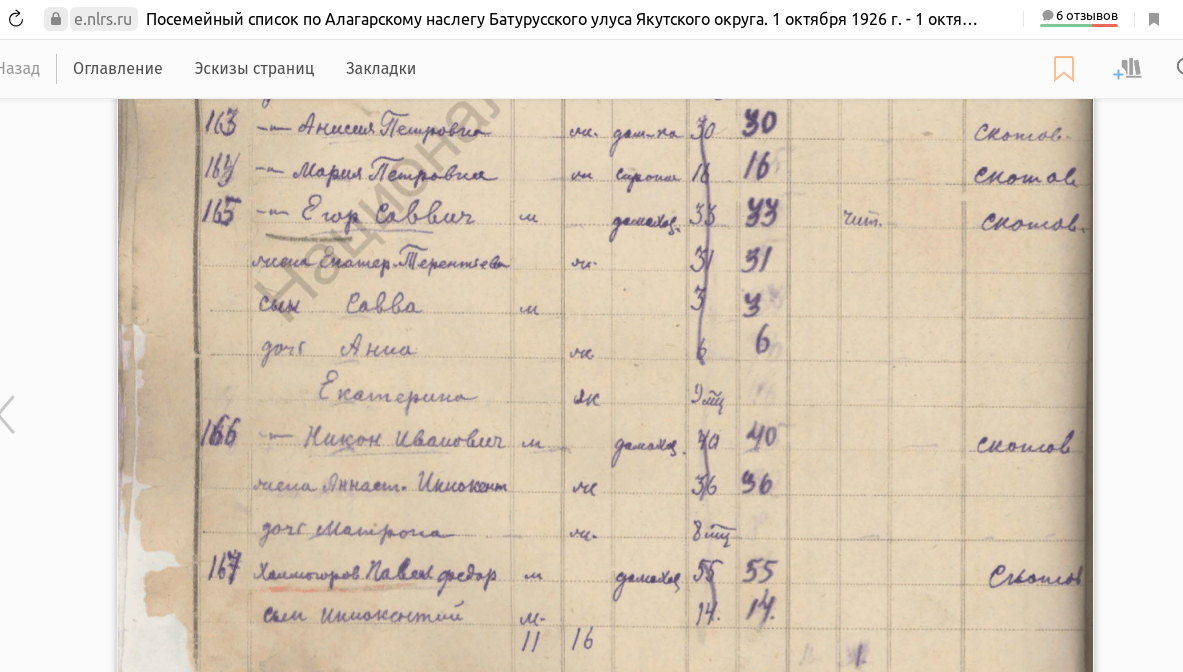 e.nlrs.ru Посемейный список по Алагарскому наслегу Батурусского улуса Якутского округа. 1 октября 1926 г. - 1 октя… 6 отзывов
Назад Оглавление Эскизы страниц Закладки
Национал
163 —"— Анисия Петровна ж. дом-ка 30 30 скотов.
164 —"— Мария Петровна ж сирота 16 16 скотов
165 —"— Егор Саввич м домохоз. 33 33 чит. скотов.
жена Екатер. Терентьева ж. 31 31
сын Савва м 3 3
дочь Анна ж 6 6
Екатерина ж 9 мц
166 —"— Никон Иванович м домохоз. 40 40 скотов
жена Анаст. Инокент ж 36 36
дочь Матрона ж. 8 мц
167 Холмогоров Павел Федор м домохоз 55 55 Скотов
сын Инокентий м. 14. 14.
11 16 1.